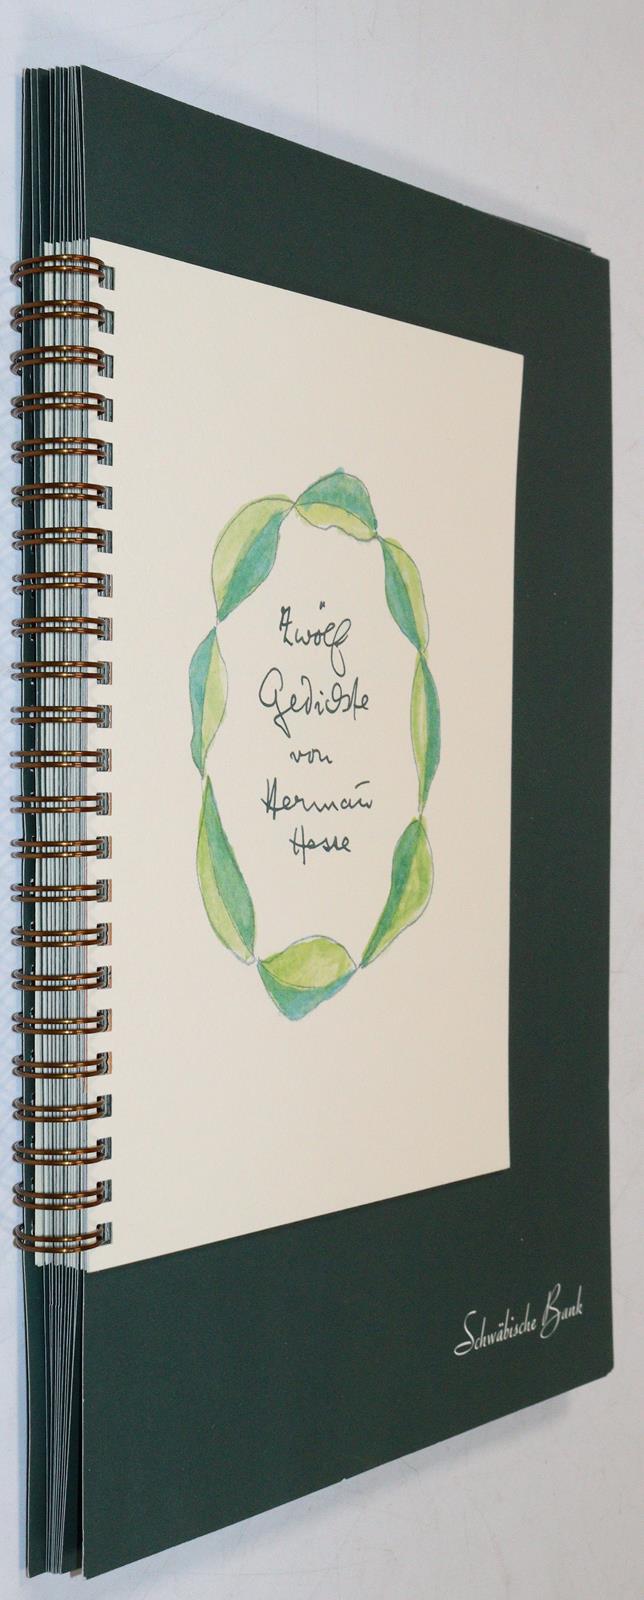 Zwölf
Gedichte
von
Hermann
Hesse
Schwäbische Bank